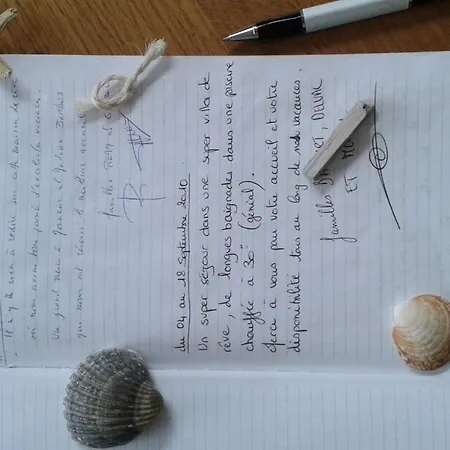 Il n'y a rien à redire sur cette maison de rêve
où nous avons tous passé d'excellentes vacances.
Un grand merci à
qui nous ont réservé le meilleur accueil
Famille
du 04 au 18 Septembre 2010
Un super séjour dans une super villa de
rêve, de longues baignades dans une piscine
chauffée à 30° (génial).
Merci à vous pour votre accueil et votre
disponibilité tout au long de nos vacances.
familles
ET